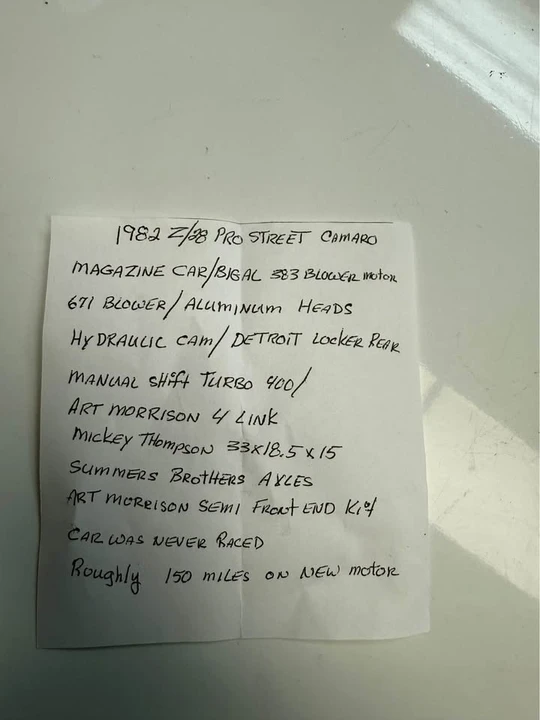 1982 Z/28 PRO STREET CAMARO
MAGAZINE CAR/BIGAL 383 BLOWER motor
671 BLOWER/ALUMINUM HEADS
HYDRAULIC CAM/DETROIT LOCKER REAR
MANUAL SHift TURBO 400/
ART MORRISON 4 LINK
MICKEY THOMPSON 33x18.5x15
SUMMERS BROTHERS AXLES
ART MORRISON SEMI FRONT END Kit
CAR WAS NEVER RACED
Roughly 150 MILES ON NEW motor